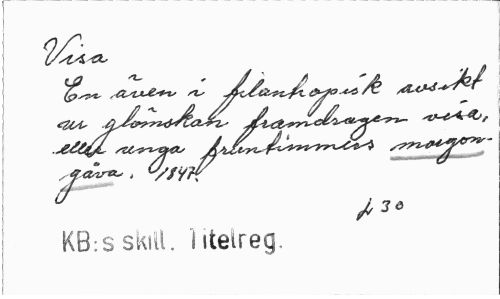 Visa
En även i filantropisk avsikt
ur glömskan framdragen visa,
eller unga fruntimmers morgon-
gåva. 1847.
f 30
KB:s skill. Titelreg.